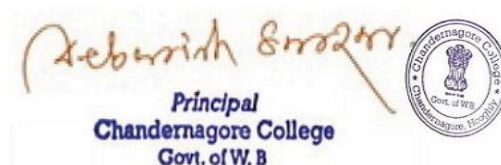 Debasish Sarkar
Principal
Chandernagore College
Govt. of W. B
Chandernagore College
Govt. of W.B
Chandernagore, Hooghly